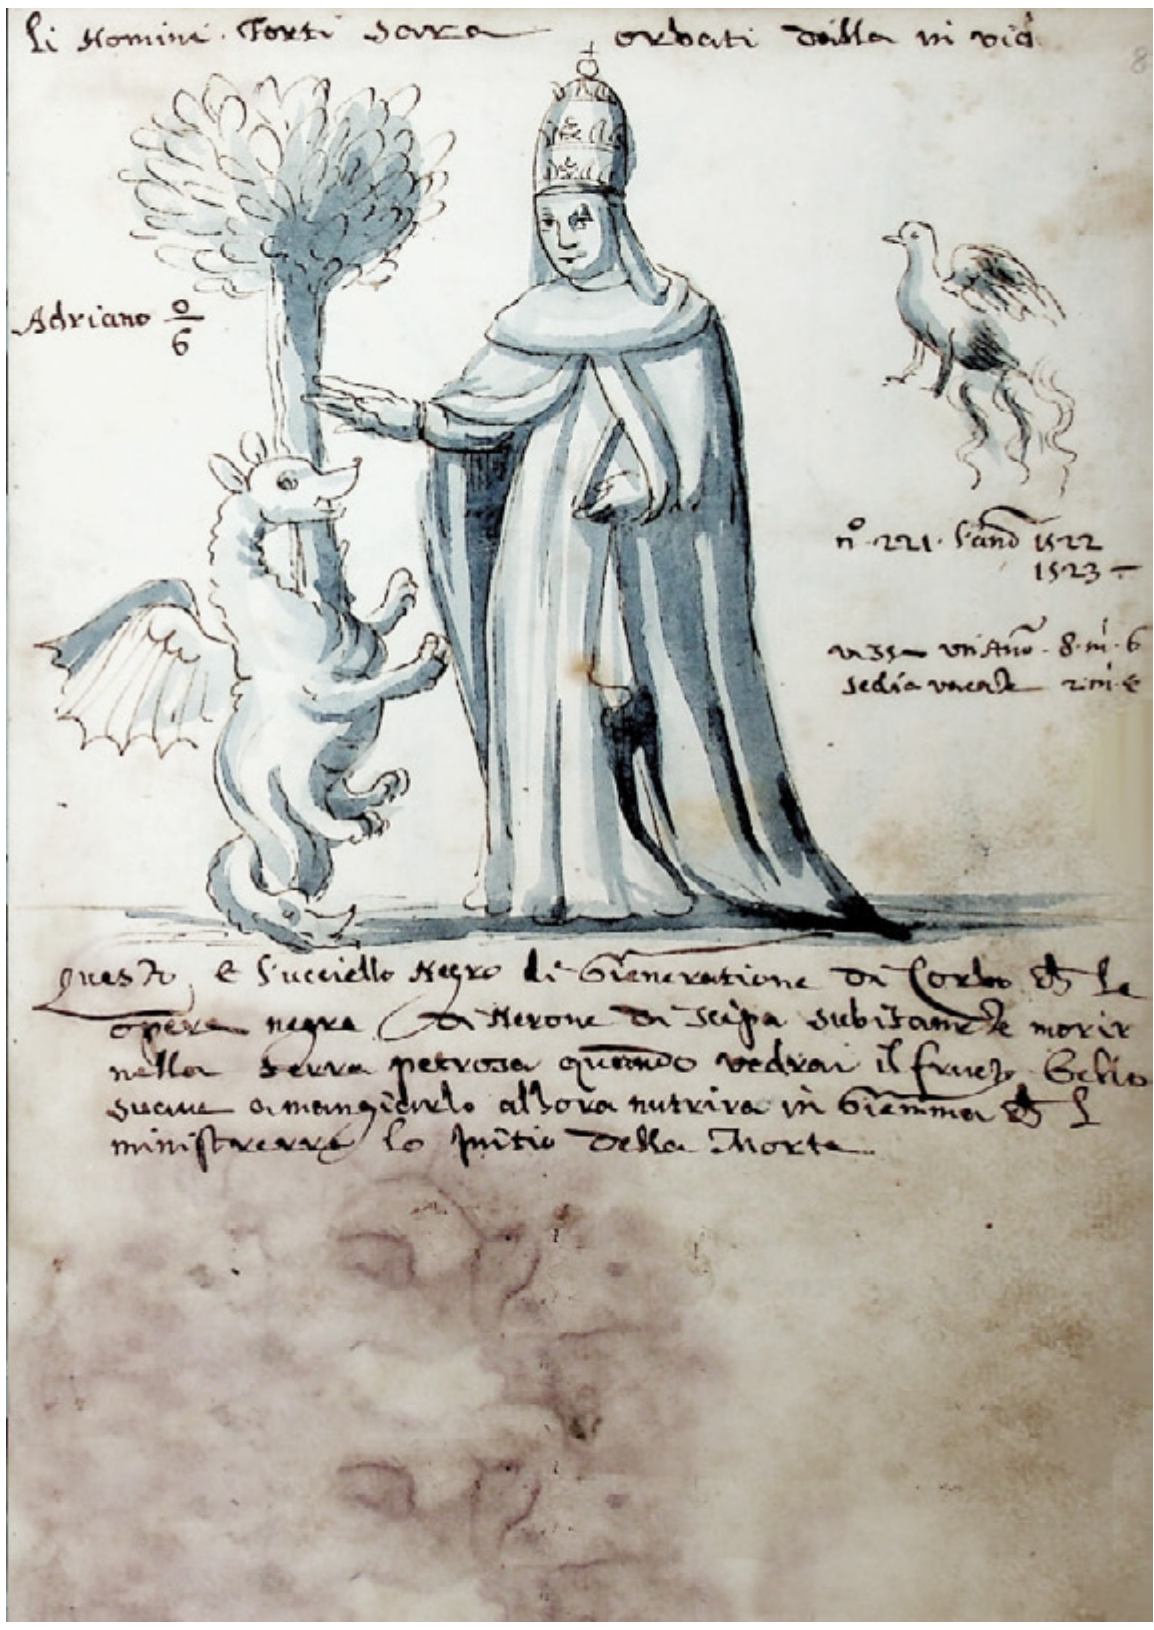 li Homini Forti Sara orbati dalla invid
8
Adriano 0
6
n° 221 l'anno 1522
1523
un Anno 8 m 6
sedia vacante 2 m
Questo, E l'ucciello Negro di Gieneratione di Corbo le
opere negre di Nerone di subitamte morir
nella terra petrosa quando vedrai il fructo
suave a mangiarlo alhora nutrira in Giemma
ministrerre lo Initio della Morte